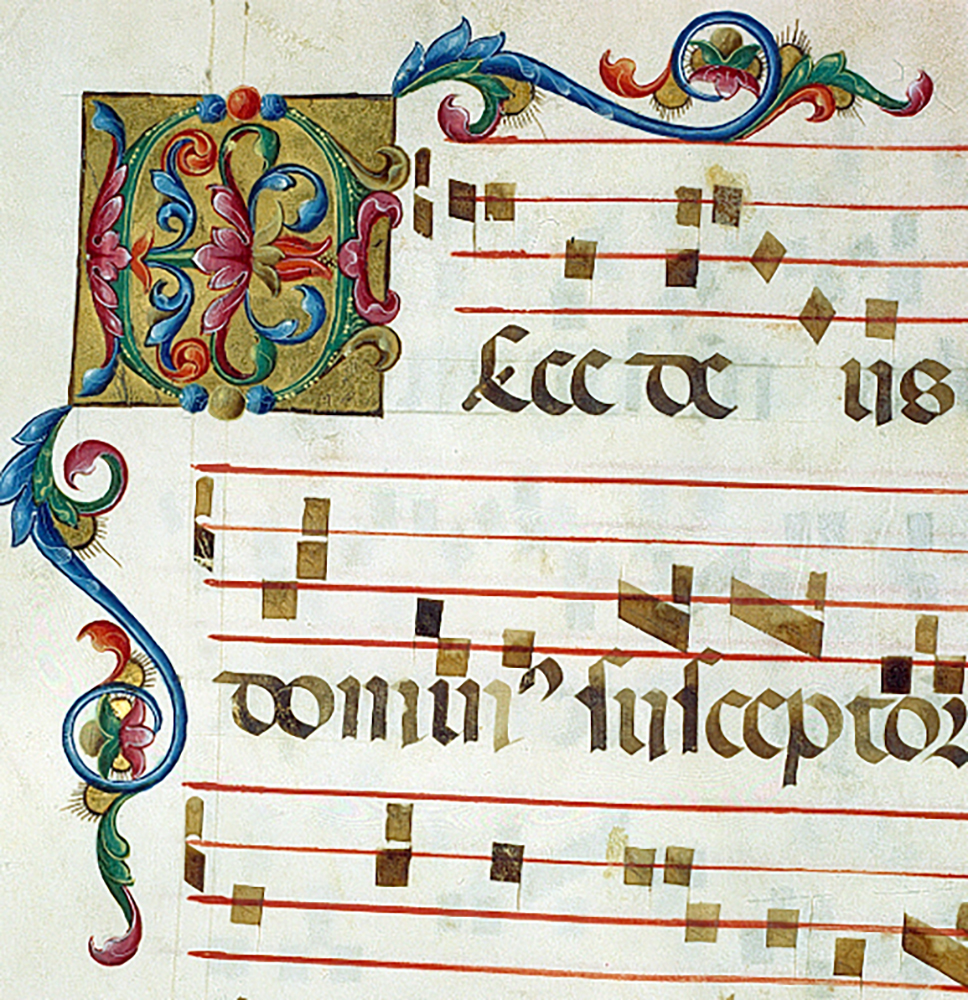 Ecce de us
dominꝰ ſuſceptor